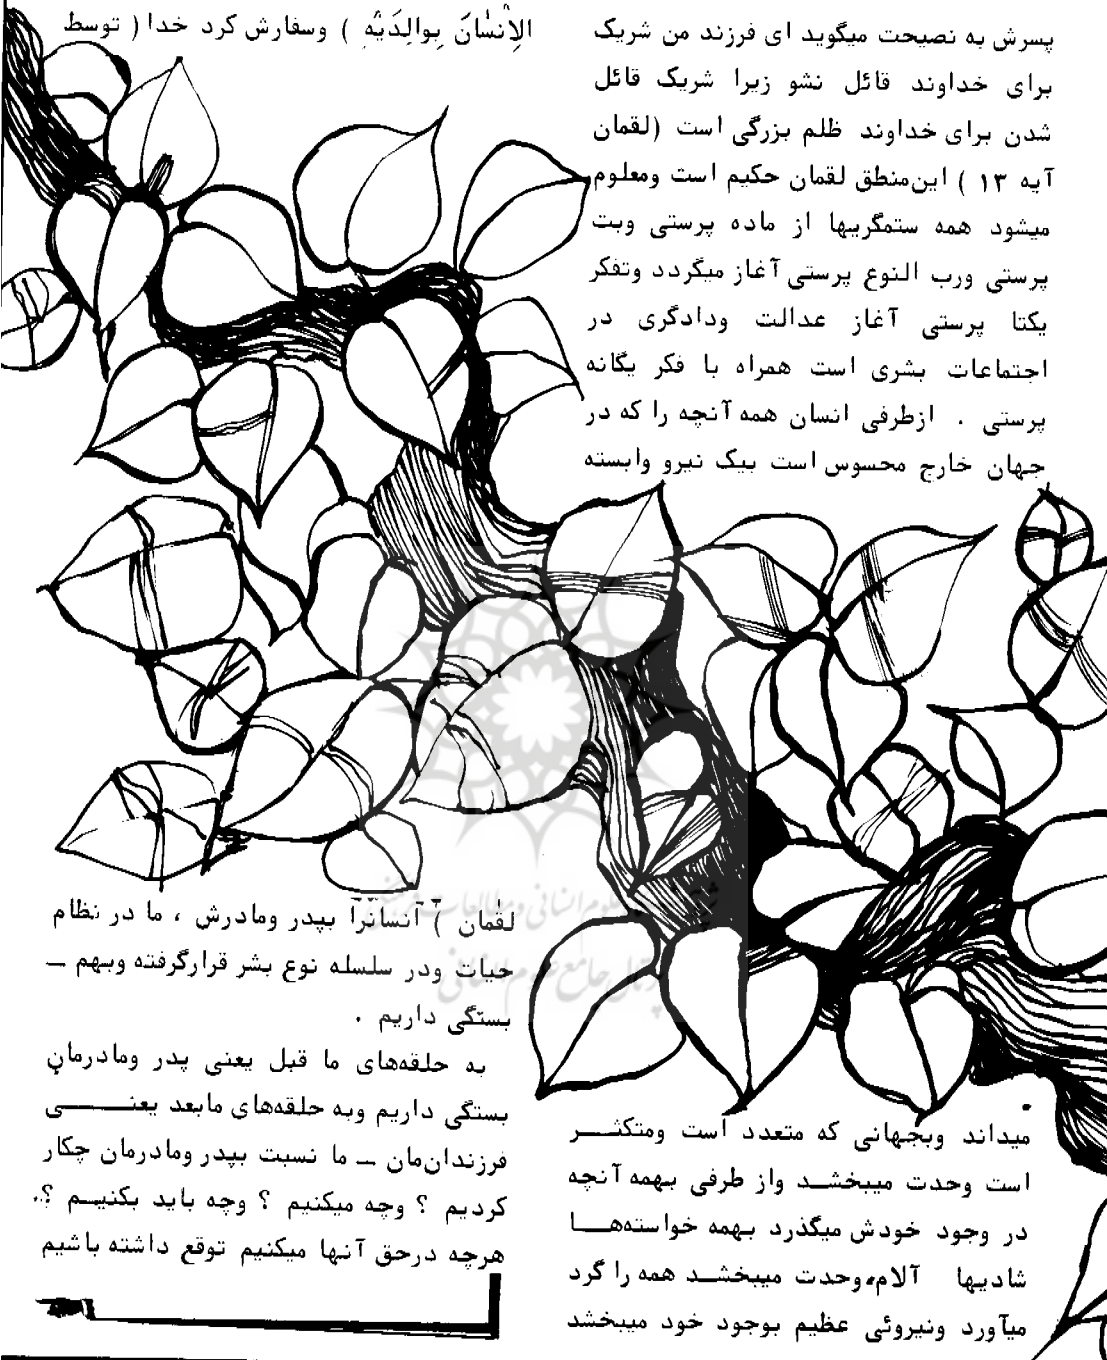 پسرش به نصیحت میگوید ای فرزند من شریک
برای خداوند قائل نشو زیرا شریک قائل
شدن برای خداوند ظلم بزرگی است (لقمان
آیه ۱۳ ) این‌منطق لقمان حکیم است ومعلوم
میشود همه ستمگریها از ماده پرستی وبت
پرستی ورب النوع پرستی آغاز میگردد وتفکر
یکتا پرستی آغاز عدالت ودادگری در
اجتماعات بشری است همراه با فکر یگانه
پرستی . ازطرفی انسان همه آنچه را که در
جهان خارج محسوس است بیک نیرو وابسته
میداند وبجهانی که متعدد است ومتکثر
است وحدت میبخشد واز طرفی بهمه آنچه
در وجود خودش میگذرد بهمه خواسته‌ها
شادیها آلام،وحدت میبخشد همه را گرد
میآورد ونیروئی عظیم بوجود خود میبخشد
الاِنْسٰانَ بِوالِدَیْهِ ) وسفارش کرد خدا ( توسط
لقمان ) انسانرا بپدر ومادرش ، ما در نظام
حیات ودر سلسله نوع بشر قرارگرفته وبهم –
بستگی داریم .
به حلقه‌های ما قبل یعنی پدر ومادرمان
بستگی داریم وبه حلقه‌های مابعد یعنی
فرزندان‌مان – ما نسبت بپدر ومادرمان چکار
کردیم ؟ وچه میکنیم ؟ وچه باید بکنیم ؟.
هرچه درحق آنها میکنیم توقع داشته باشیم